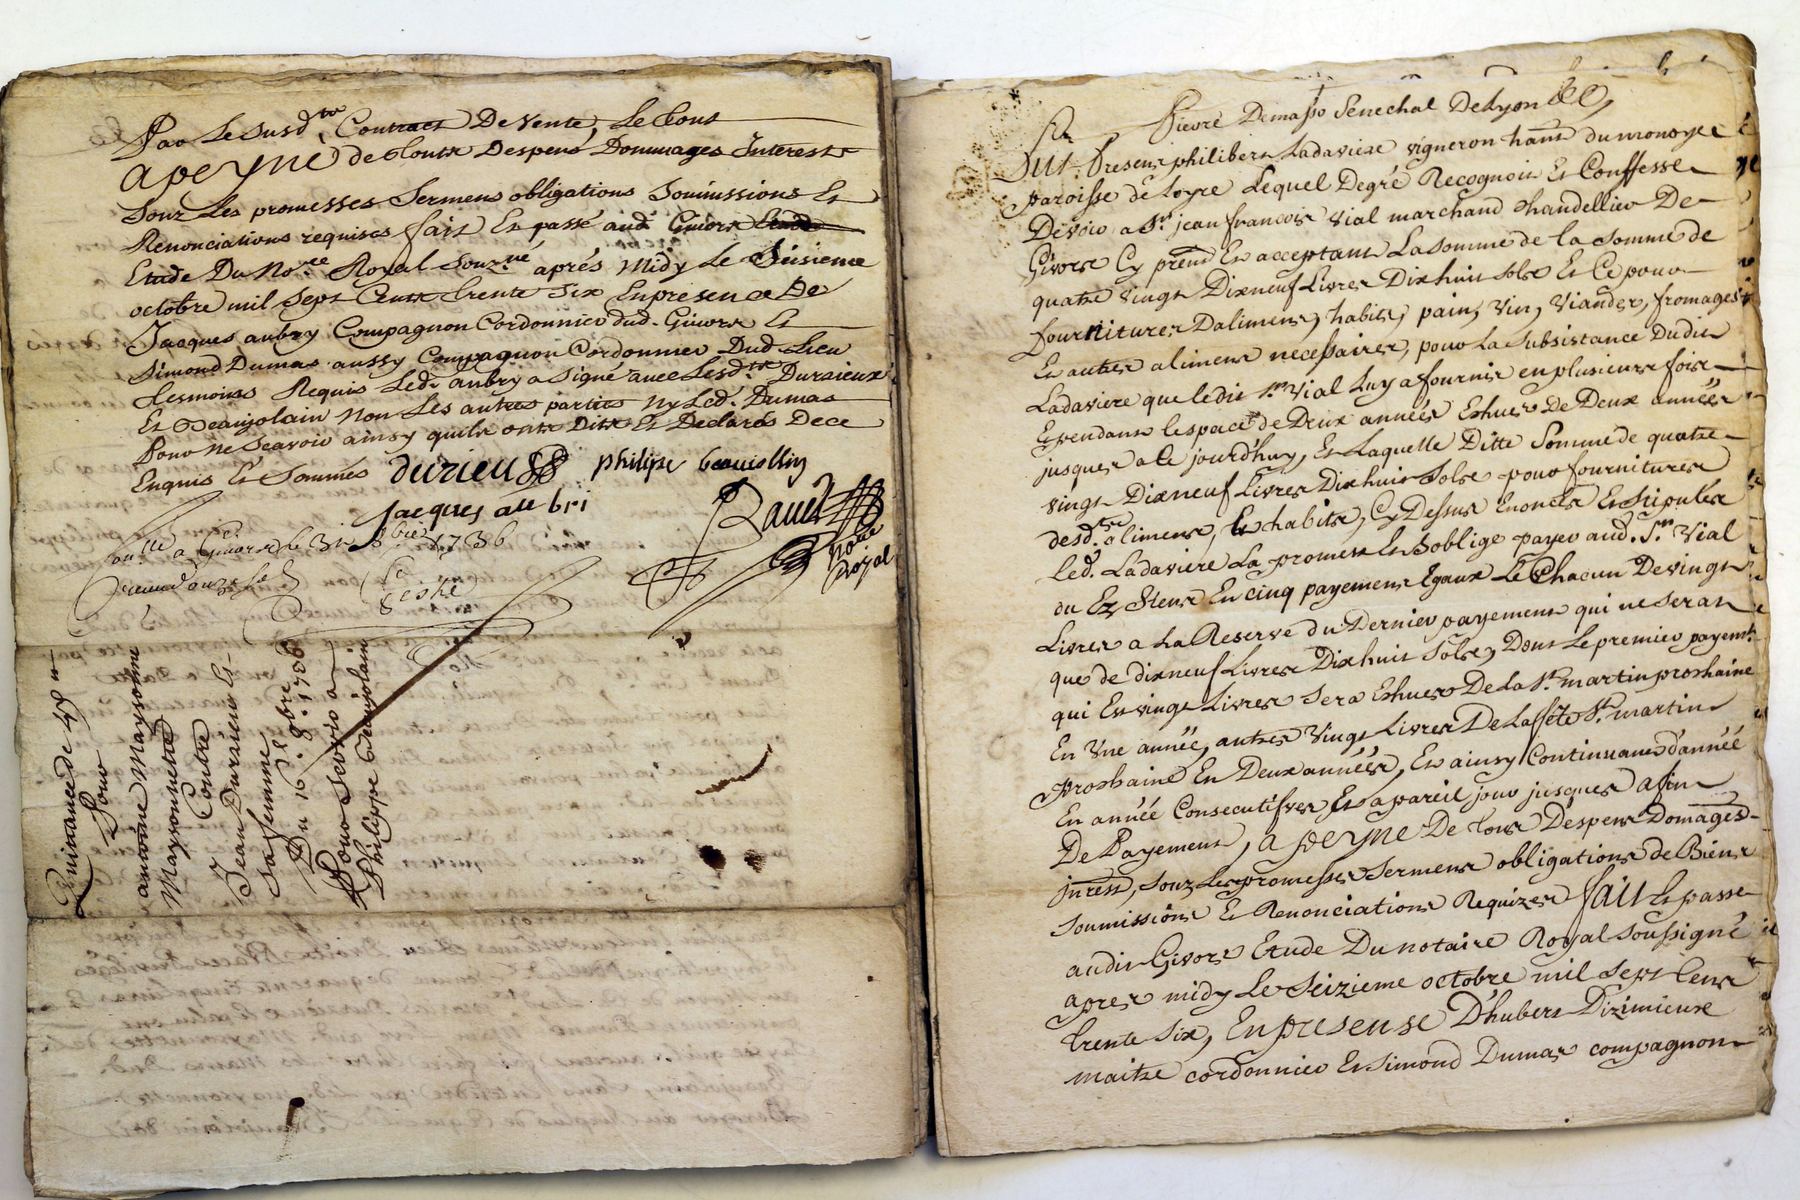 Par Le susd.te Contract De Vente, Le tout
a peyne de toutx Despens Dommages Interests
Souz Les promesses Sermens obligations Soumissions Et
Renonciations requises fait Et passé aud. Givors
Etude Du No.re Royal Souz.né aprés Midy Le Seisieme
octobre mil Sept Centx trente six En presence De
Jacques aubry Compagnon Cordonnier dud. Givors Et
Simond Dumas aussy Compagnon Cordonnier Dud. Lieu
tesmoins Requis Led. aubry a Signé avec Lesd.ts Durieux
Et Beaujolain Non Les autres parties Ny Led. Dumas
Pour ne Scavoir ainsy quils ontx Ditx Et Declarés De ce
Enquis Et Sommés durieu philipe beaujollin
jacques au bri
Ravet
No.re
Royal
Con.llé a Givors le 31 8bre 1736
Quittance de 49 tt
Pour
antoine Maysonne
Maysonnette
Contre
Jean Durieux Et
Sa femme
Du 16.e 8bre 1736
Pour Servir a
Philippe Beaujolain
Pierre Demasso Senechal De Lyon
Fut Present philibert Ladaviere vigneron hant du monoye
parroisse de Loyre Lequel De gré Recognoit Et Confesse
Devoir a S.r jean francois Vial marchand Chandellier De
Givors Cy present Et acceptant La somme de la somme de
quatre vingt Dixneuf Livres Dixhuit Sols Et Ce pour
fournitures Dalimens, habits, pain, vin, Viandes, fromages
Et autres alimens necessaires, pour La Subsistance Dudit
Ladaviere que ledit S.r Vial Luy a fournit en plusieurs fois
Et pendant lespace de Deux années Eschues De Deux années
jusques a Ce jourd'huy, Et Laquelle Ditte Somme de quatre
vingt Dixneuf Livres Dixhuit Sols pour fournitures
desd.ts alimens, Et habits, Cy Dessus Enoncés Et Stipulés
Led. Ladaviere La promest Et Soblige payer aud. S.r Vial
ou Ez Siens En cinq payemens Egaux Le Chacun De vingt
Livres a La Reserve du Dernier payement qui ne Sera
que de dixneuf Livres Dixhuit Sols, Dont Le premier payem.t
qui Est vingt Livres Sera Eschuer De La S.t martin prochaine
En Une année, autres Vingt Livres De La fête S.t martin
prochaine En Deux années, Et ainsy Continuant d'année
En année Consecutifves Et a pareil jour jusques a fin
De Payement, a peyne De tous Despens Domages
jnrests, souz Les promesses Sermens obligations de Biens
Soumissions Et Renonciations Requizes fait Et passe
audit Givors Etude Du notaire Royal Soussigné
apres midy Le Seizieme octobre mil sept Cent
trente Six, En presense D'hubert Dizimieux
maitre cordonnier Et Simond Dumas compagnon